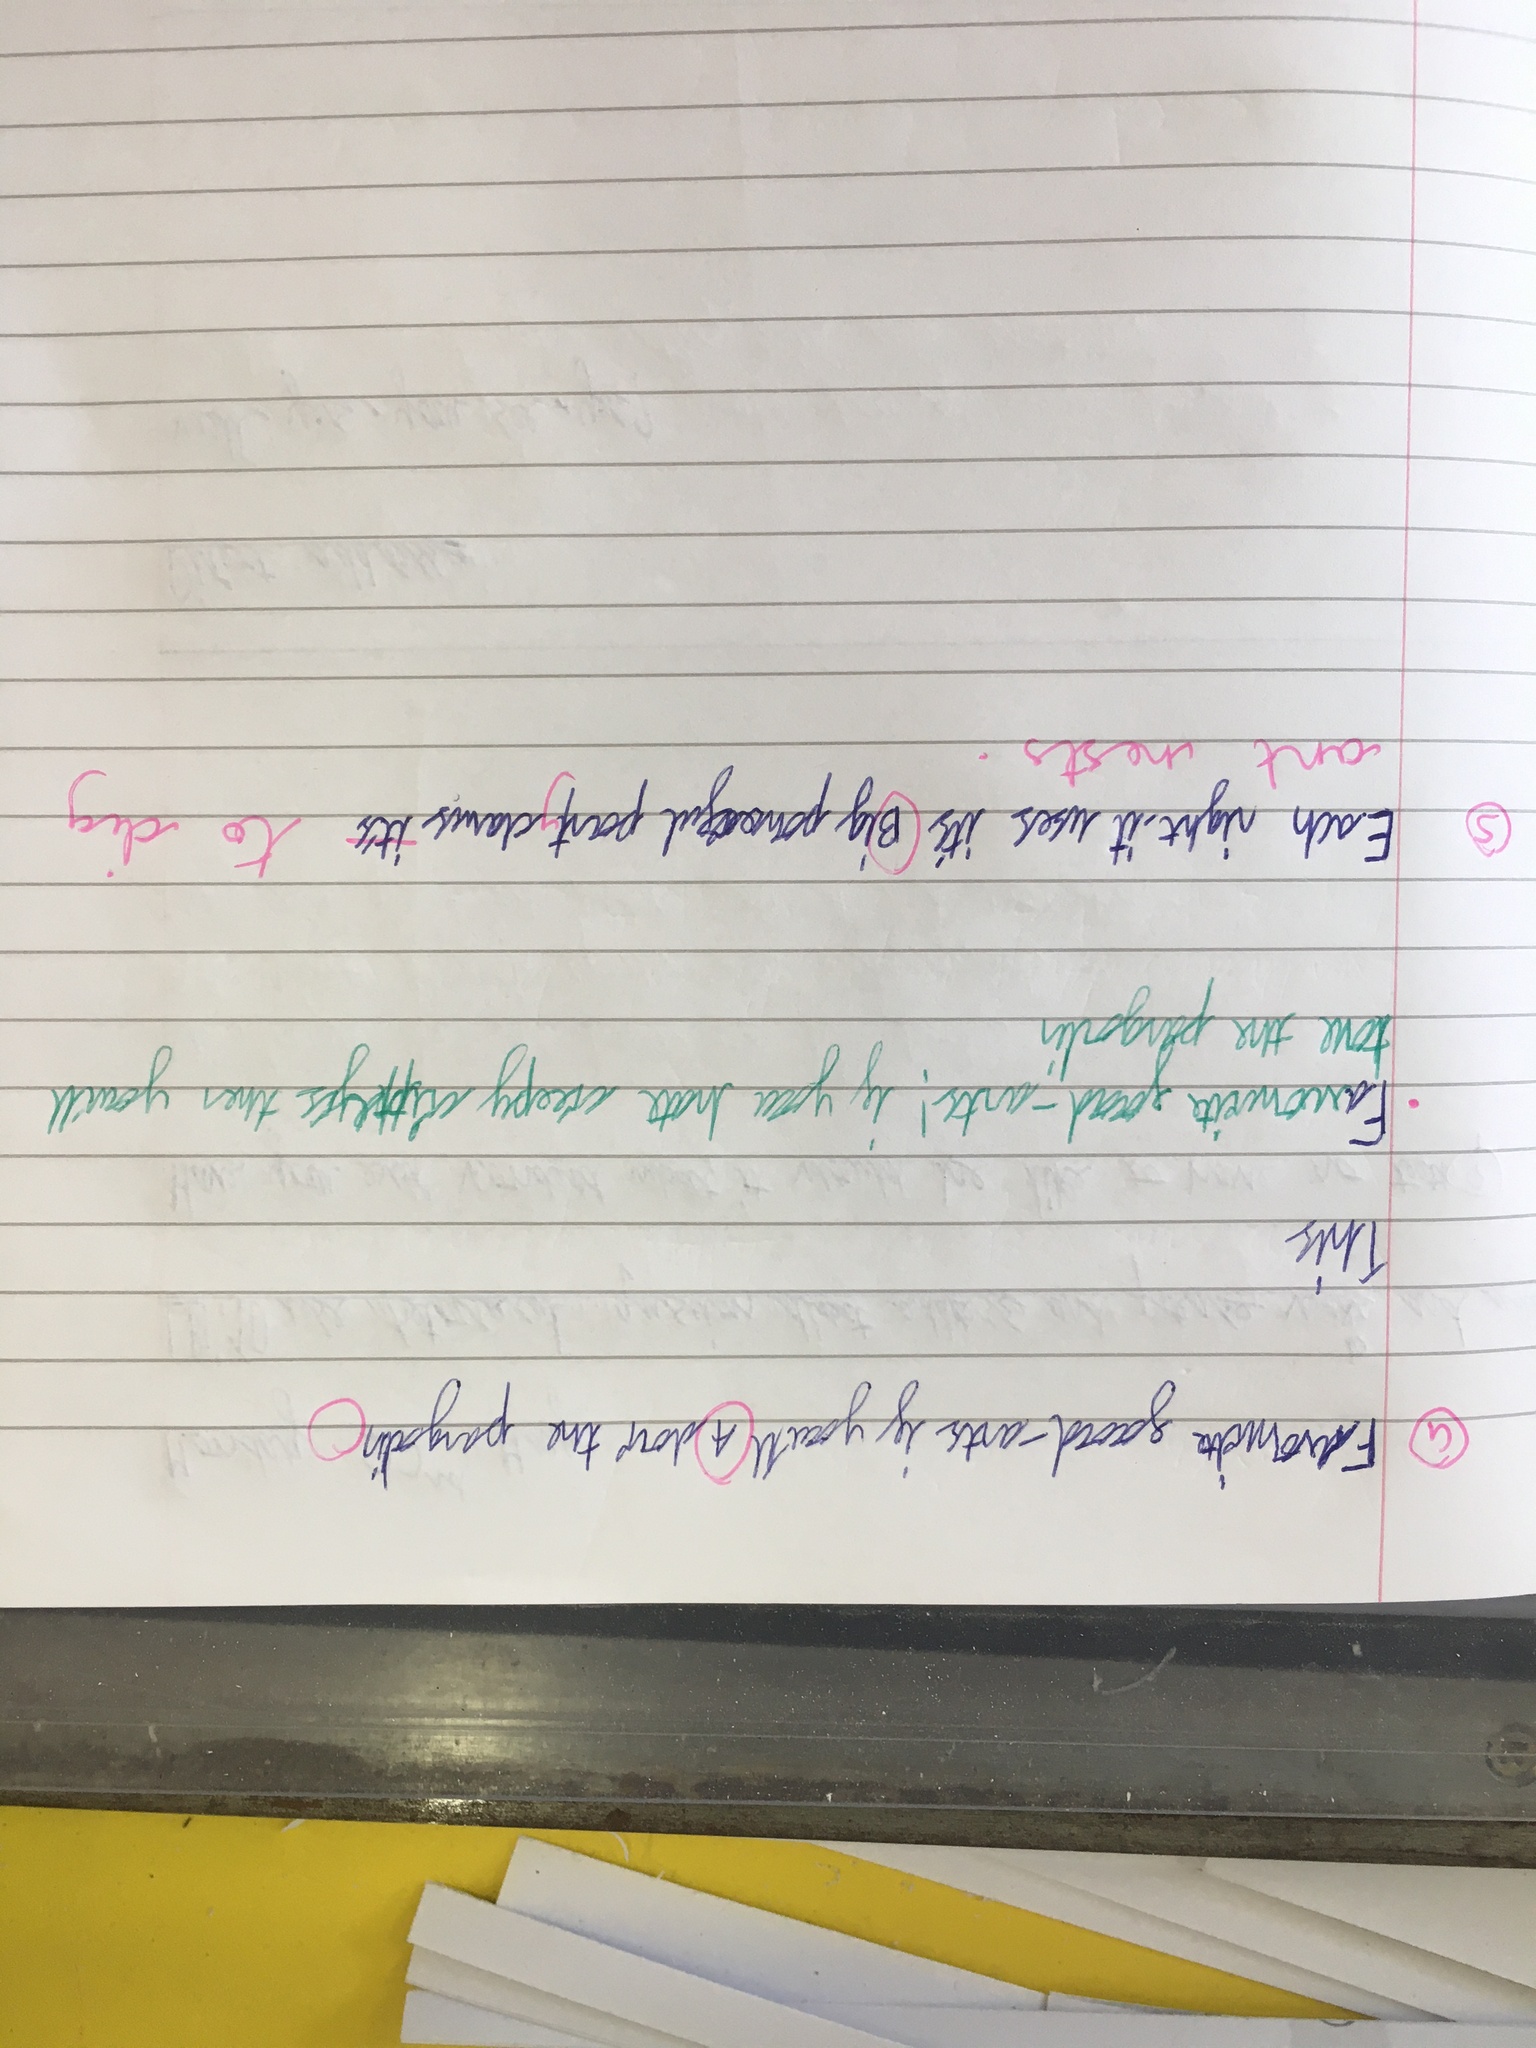 ④ Favouwite food-ants if you'll Adore the pangolin
This
• Favouwite food-ants! if you hate creepy then you'll
love the pangolin
⑤ Each night it uses it's Big powerful front claws it's to dig
ant nests.